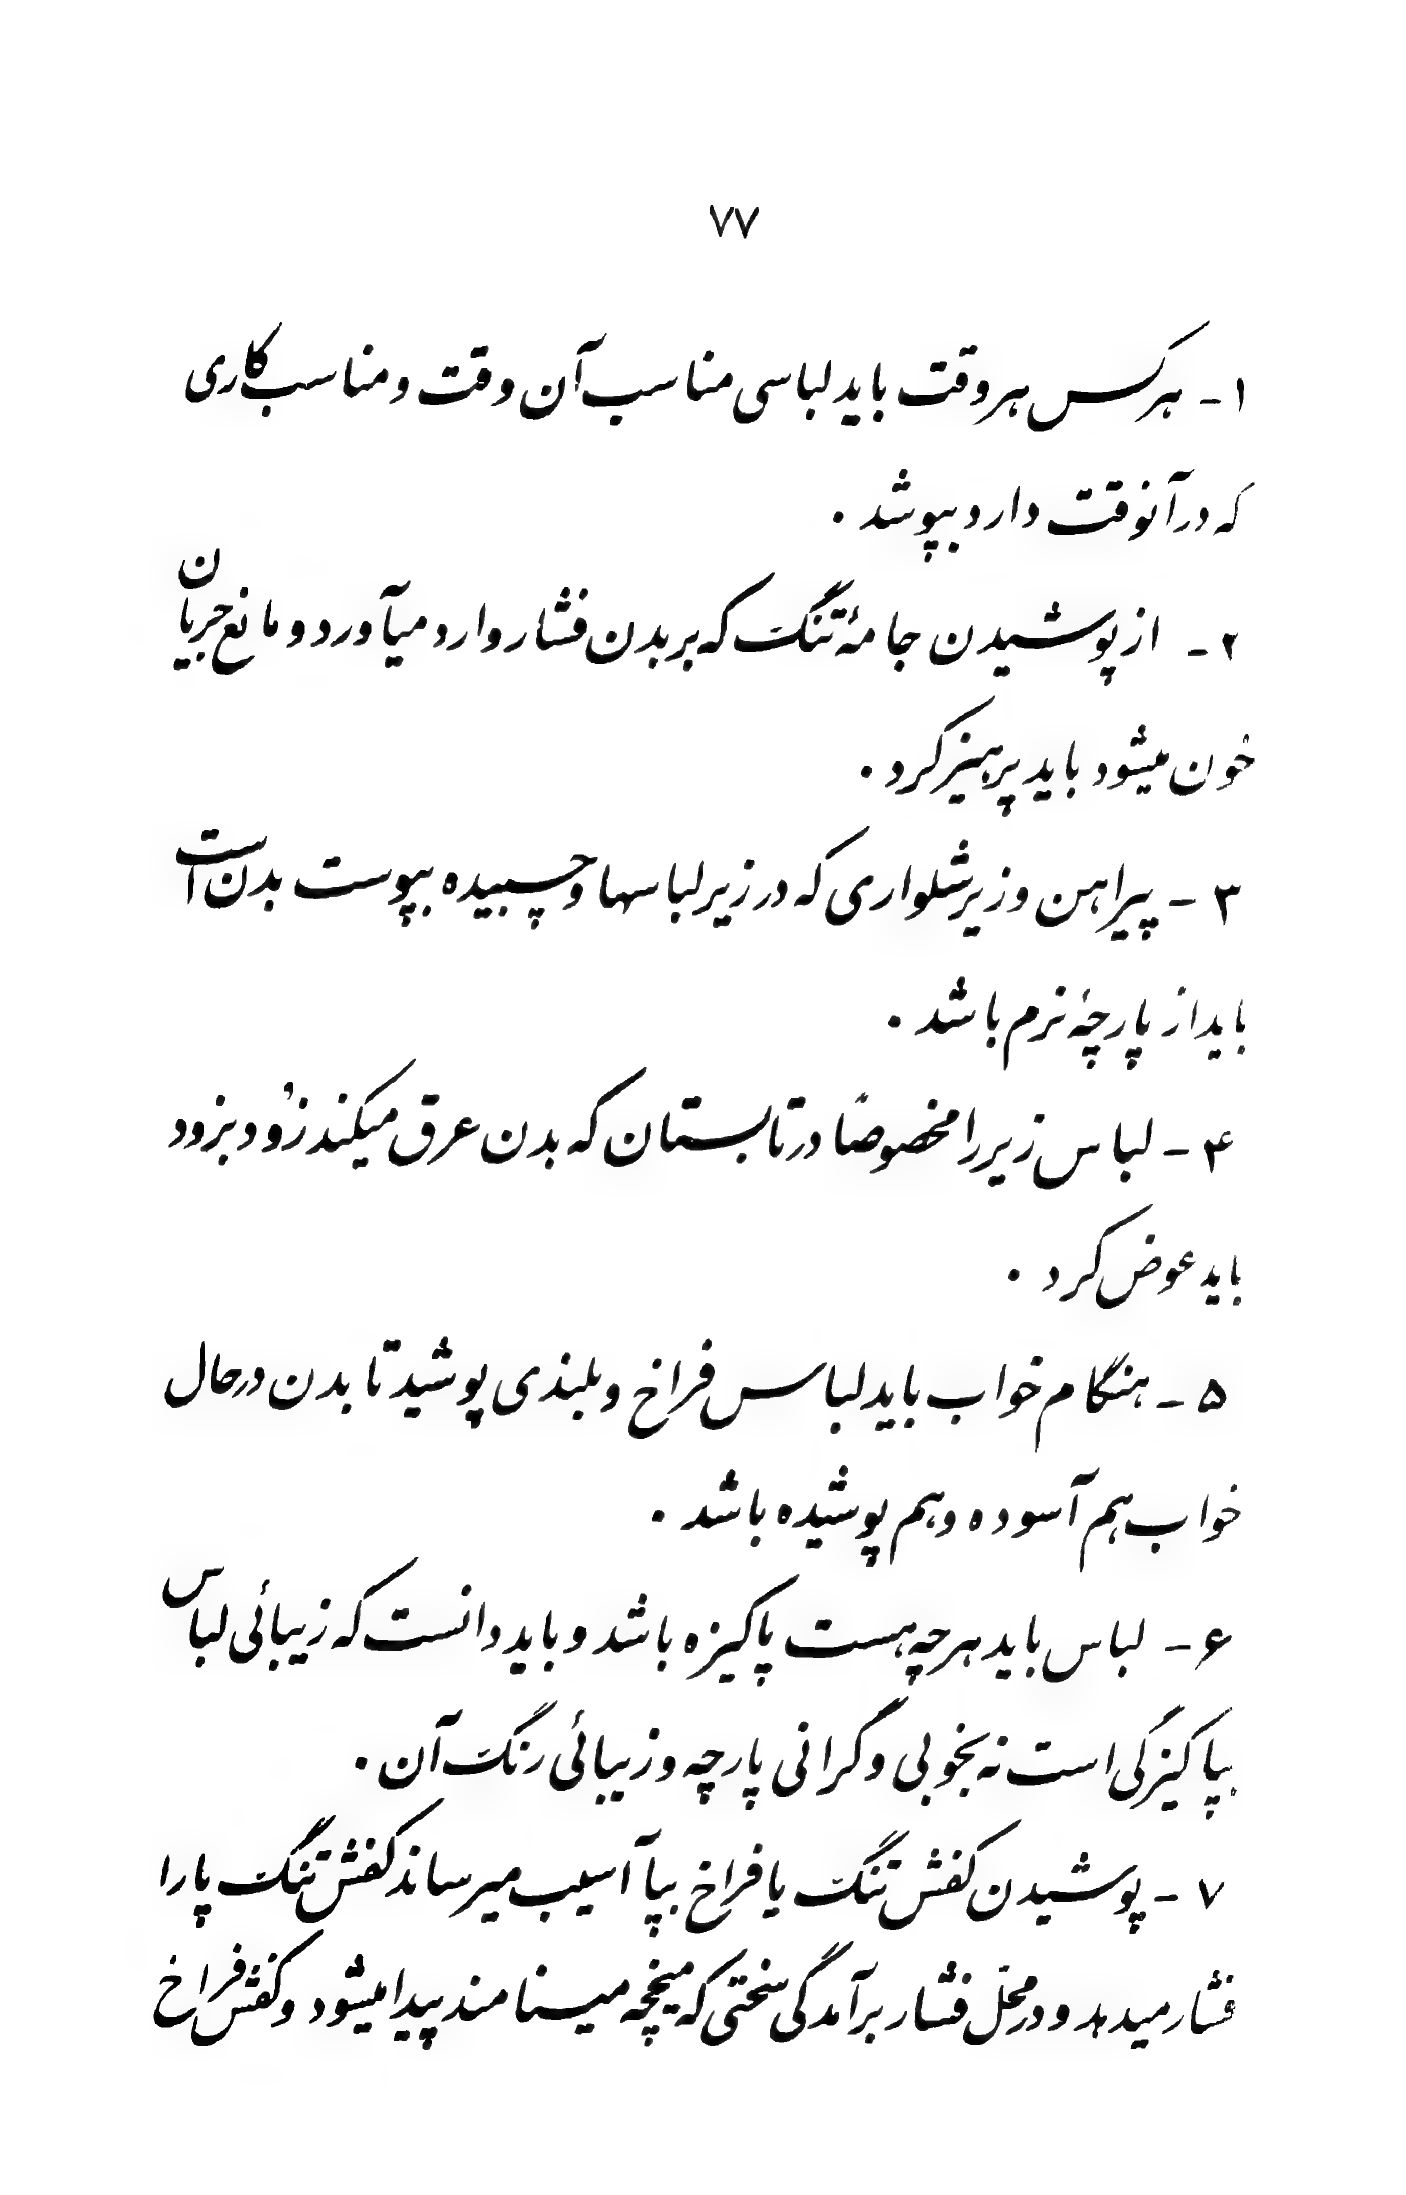 ۷۷
۱- هرکس هروقت باید لباسی مناسب آن وقت و مناسب کاری
که در آنوقت دارد بپوشد .
۲- از پوشیدن جامهٔ تنگ که بر بدن فشار وارد میآورد و مانع جریان
خون میشود باید پرهیز کرد .
۳- پیراهن و زیرشلواری که در زیر لباسها و چسبیده بپوست بدن است
باید از پارچهٔ نرم باشد .
۴- لباس زیر را مخصوصاً در تابستان که بدن عرق میکند زُود بزود
باید عوض کرد .
۵- هنگام خواب باید لباس فراخ و بلندی پوشید تا بدن در حال
خواب هم آسوده و هم پوشیده باشد .
۶- لباس باید هرچه هست پاکیزه باشد و باید دانست که زیبائی لباس
بپاکیزگی است نه بخوبی و گرانی پارچه و زیبائی رنگ آن .
۷- پوشیدن کفش تنگ یا فراخ بپا آسیب میرساند کفش تنگ پا را
فشار میدهد و در محلّ فشار برآمدگی سختی که میخچه مینامند پیدا میشود و کفش فراخ